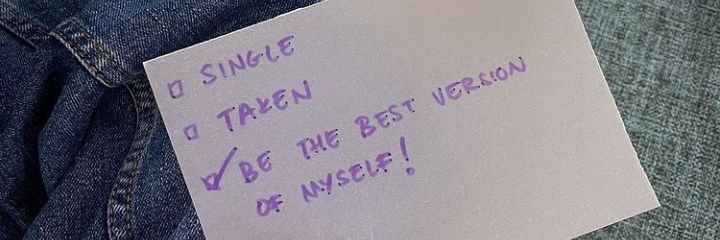 ☐ SINGLE
☐ TAKEN
☑ BE THE BEST VERSION
OF MYSELF!